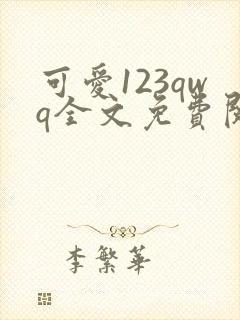 可愛123qw
q全文免費
李繁華